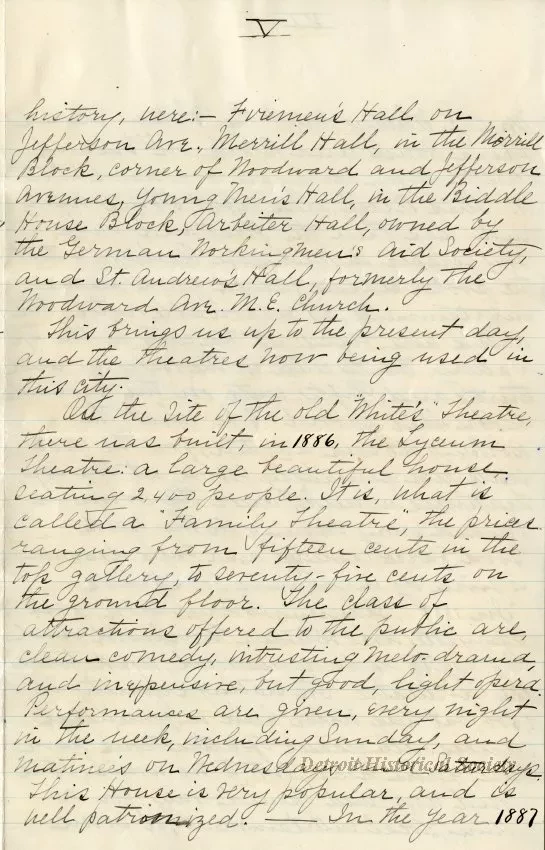 V
history, were:- Firemen's Hall on
Jefferson Ave., Merrill Hall, in the Merrill
Block, corner of Woodward and Jefferson
Avenues, Young Men's Hall, in the Biddle
House Block, Arbeiter Hall, owned by
the German Workingmen's Aid Society,
and St. Andrew's Hall, formerly the
Woodward Ave. M.E. Church.
This brings us up to the present day,
and the theatres now being used in
this city.
On the site of the old "White's" Theatre,
there was built, in 1886, the Lyceum
Theatre: a large beautiful house,
seating 2,400 people. It is, what is
called a "Family Theatre", the prices
ranging from fifteen cents in the
top gallery, to seventy-five cents on
the ground floor. The class of
attractions offered to the public are,
clean comedy, intrusting melo-drama,
and inexpensive, but good, light opera.
Performances are given, every night
in the week, including Sunday, and
matinees on Wednesdays Saturdays.
Detroit Historical Society
This House is very popular, and is
well patronized. — In the year 1887